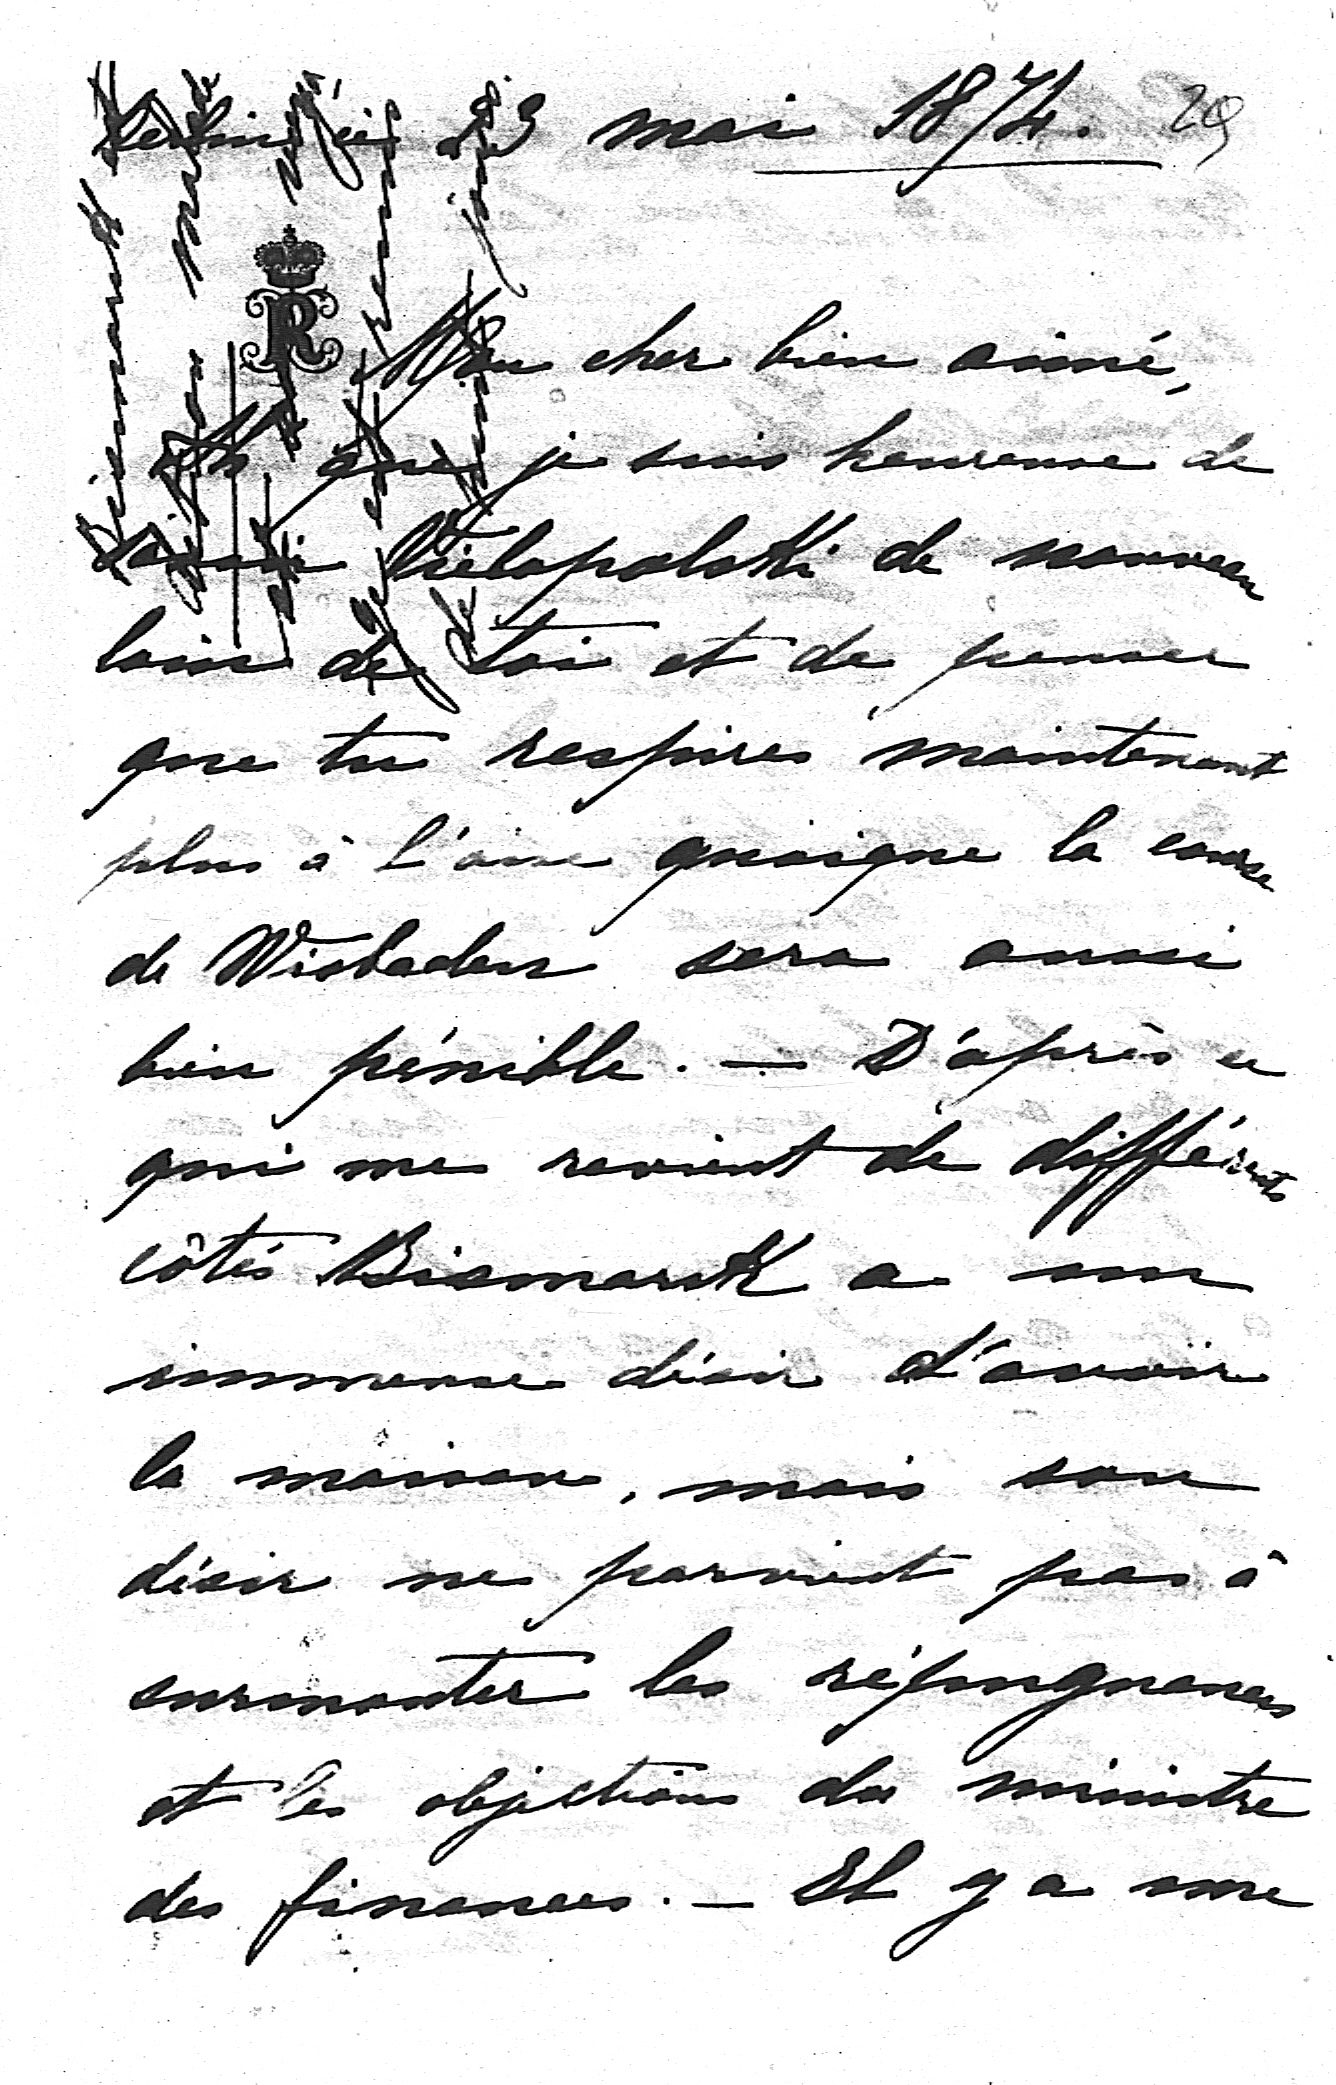 Berlin ce 23 mai 1874.
29
R
Mon cher bien aimé,
Ah que je suis heureuse de
savoir Vielopolski de nouveau
loin de toi et de penser
que tu respires maintenant
plus à l'aise quoique la course
de Wisbaden sera aussi
bien pénible. — D'après ce
qui me revient de différents
côtés Bismarck a un
immense désir d'avoir
la maison, mais son
désir ne parvient pas à
surmonter les répugnances
et les objections du ministre
des finances. — Il y a une